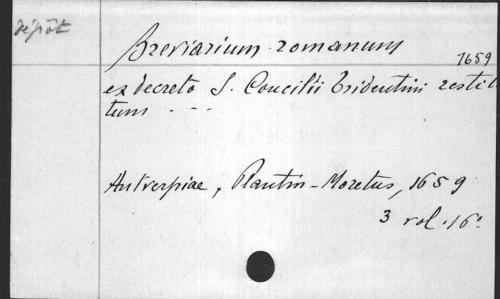 dépôt
Breviarium romanum
1659
ex decreto S. Concilii tridentini restitu
tum - - -
Antverpiae, Plantin-Moretus, 1659
3 vol. 16°